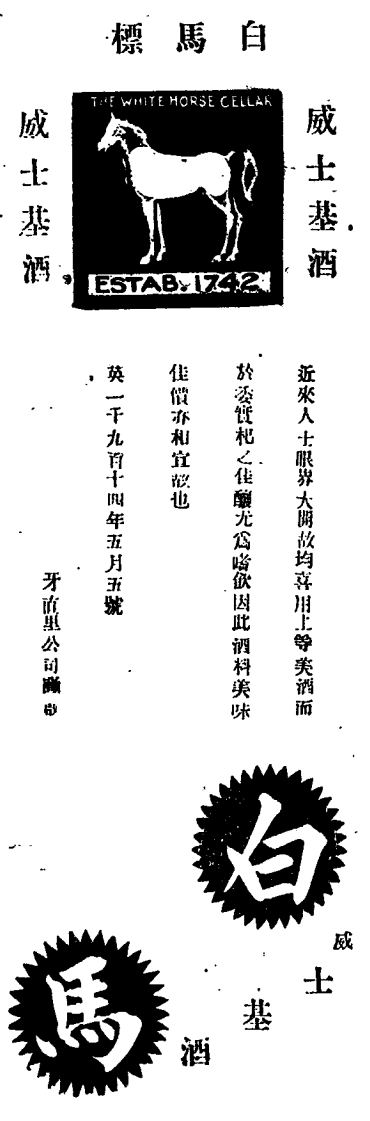 白馬標
威士基酒
THE WHITE HORSE CELLAR
ESTAB. 1742
威士基酒
近來人士眼界大開故均喜用上等美酒而
於委實杞之佳釀尤爲嗜飲因此酒料美味
佳價亦和宜故也
英一千九百十四年五月五號
牙直里公司
白馬
威士基酒